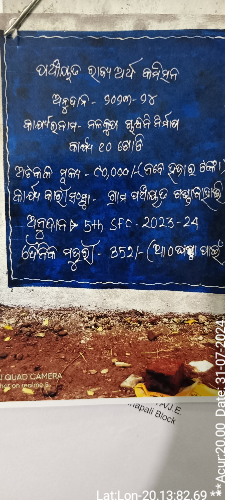 ପଞ୍ଚମ ରାଜ୍ୟ ଅର୍ଥ କମିଶନ
ଅନୁଦାନ - ୨୦୨୩-୨୪
କାର୍ଯ୍ୟର ନାମ - ନଳକୂପ ଚଟାଣ ନିର୍ମାଣ
କାର୍ଯ୍ୟ ୧୦ ଗୋଟି
ଅଟକଳ ମୂଲ୍ୟ - ୯୦,୦୦୦/- (ନବେ ହଜାର ଟଙ୍କା)
କାର୍ଯ୍ୟକାରୀ ସଂସ୍ଥା - ଗ୍ରାମ ପଞ୍ଚାୟତ
ଅନୁଦାନ 5th SFC - 2023-24
ଦୈନିକ ମଜୁରୀ - 352/- (ଆଠ ଘଣ୍ଟା ପାଇଁ
QUAD CAMERA
Shot on realme
J.E.
apali Block
Lat:Lon-20.13:82.69 ***Acur:20.00 Date: 31-07-2024